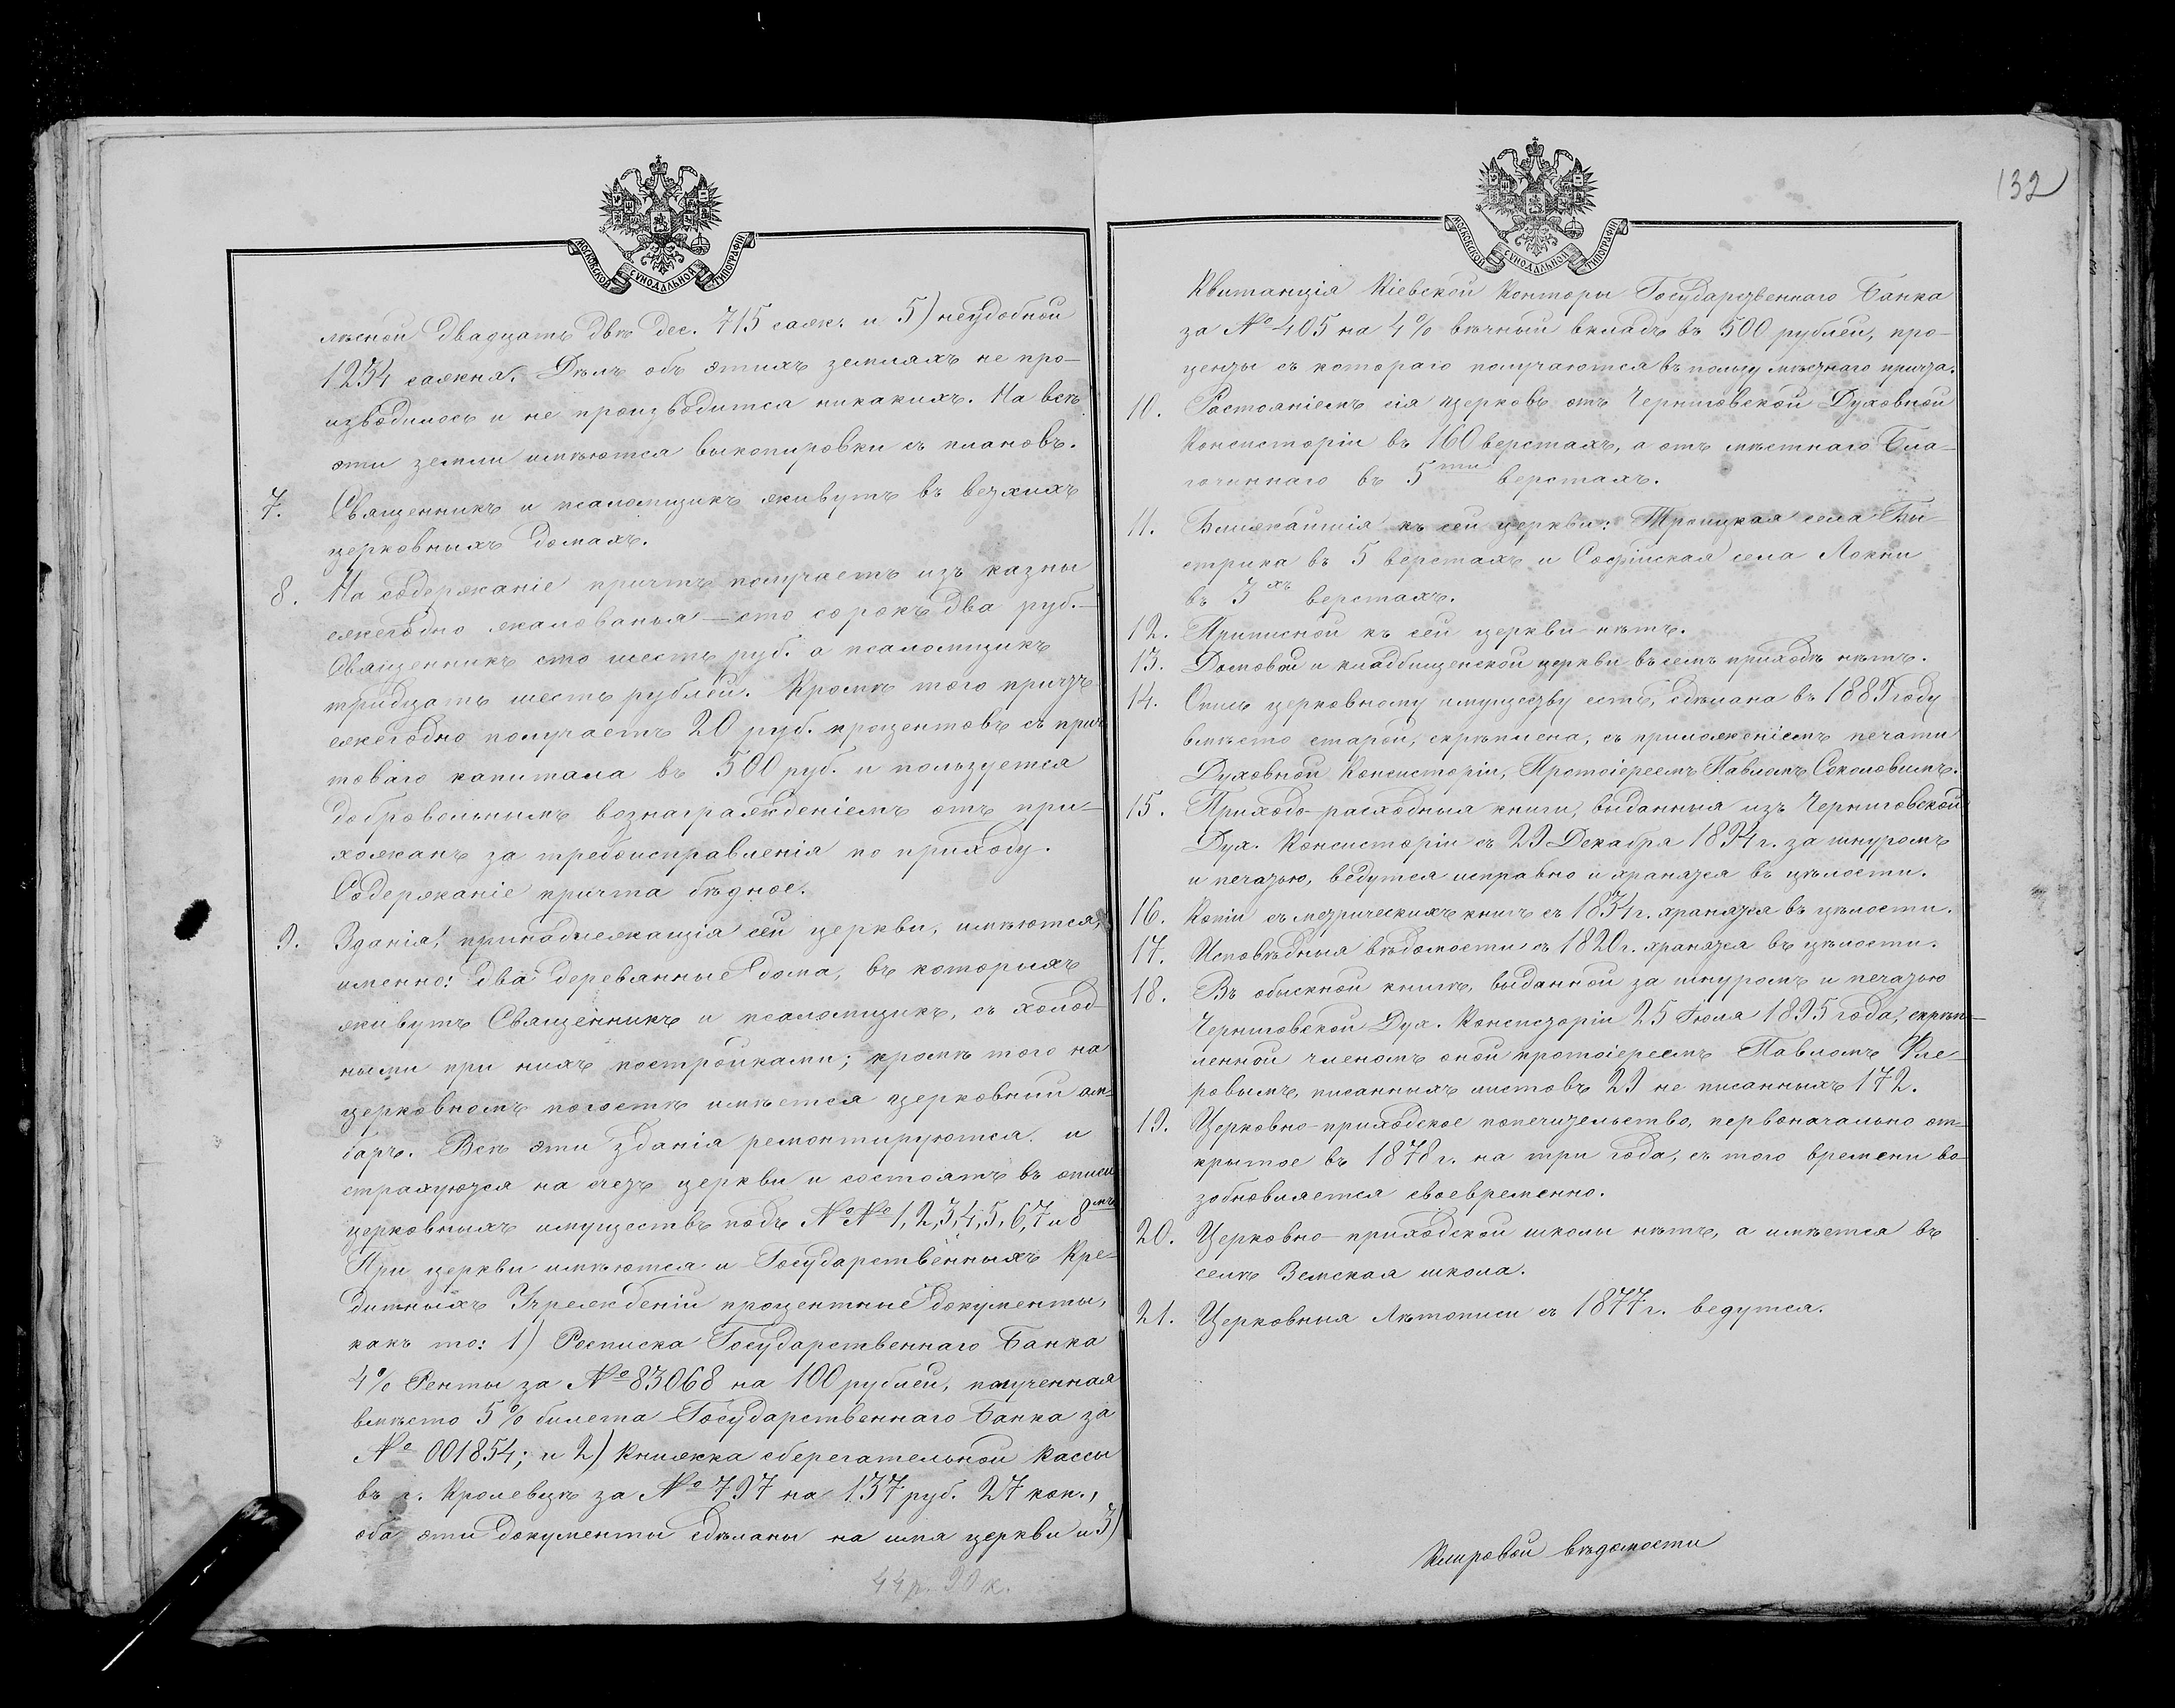 МОСКОВСКОЙ СѴНОДАЛЬНОЙ ТИПОГРАФІИ
лѣсной двадцать двѣ дес. 715 сажк. и 5) неудобной
1254 сажня. Дѣлъ объ этихъ земляхъ не про-
изводилось и не производится никакихъ. На всѣ
эти земли имѣются выкопировки съ плановъ.
7. Священникъ и псаломщикъ живутъ въ ветхихъ
церковныхъ домахъ.
8. На содержаніе причтъ получаетъ изъ казны
ежегодно жалованья — сто сорокъ два руб. —
Священникъ сто шесть руб. а псаломщикъ
тридцать шесть рублей. Кромѣ того причтъ
ежегодно получаетъ 20 руб. процентовъ съ прич
товаго капитала въ 500 руб. и пользуется
добровольнымъ вознагражденіемъ отъ при-
хожанъ за требоисправленія по приходу.
Содержаніе причта бѣдное.
9. Зданія, принадлежащія сей церкви, имѣются,
именно: два деревянные дома, въ которыхъ
живутъ Священникъ и псаломщикъ, съ холод
ными при нихъ постройками; кромѣ того на
церковномъ погостѣ имѣется церковный ам-
баръ. Всѣ эти зданія ремонтируются и
страхуются на счетъ церкви и состоятъ въ описи
церковныхъ имуществъ подъ №№ 1, 2, 3, 4, 5, 6, 7 и 8мъ
При церкви имѣются и Государственныхъ Кре-
дитныхъ Учрежденій процентные документы,
какъ то: 1) Росписка Государственнаго Банка
4% Ренты за № 83068 на 100 рублей, полученная
вмѣсто 5% билета Государственнаго Банка за
№ 001854; и 2) Книжка сберегательной кассы
въ г. Кролевцѣ за № 797 на 137 руб. 27 коп.,
оба эти документы сдѣланы на имя церкви и 3)
44 р. 99 к.
132
МОСКОВСКОЙ СѴНОДАЛЬНОЙ ТИПОГРАФІИ
Квитанція Кіевской Конторы Государственнаго Банка
за № 405 на 4% вѣчный вкладъ въ 500 рублей, про-
центы съ котораго получаются въ пользу мѣстнаго причта.
10. Растояніемъ сія церковь отъ Черниговской Духовной
Консисторіи въ 160 верстахъ, а отъ мѣстнаго Бла-
гочиннаго въ 5ти верстахъ.
11. Ближайшія къ сей церкви: Троицкая села Бы-
стрика въ 5 верстахъ и Софійская села Локни
въ 3хъ верстахъ.
12. Приписной къ сей церкви нѣтъ.
13. Домовой и кладбищенской церкви въ семъ приходѣ нѣтъ.
14. Опись церковному имуществу есть, сдѣлана въ 1889 году
вмѣсто старой, скрѣплена, съ приложеніемъ печати
Духовной Консисторіи, Протоіереемъ Павломъ Соколовымъ.
15. Приходо-расходныя книги, выданныя изъ Черниговской
Дух. Консисторіи съ 29 Декабря 1894 г. за шнуромъ
и печатью, ведутся исправно и хранятся въ цѣлости.
16. Копіи съ метрическихъ книгъ съ 1834 г. хранятся въ цѣлости.
17. Исповѣдныя вѣдомости съ 1820 г. хранятся въ цѣлости.
18. Въ обыскной книгѣ, выданной за шнуромъ и печатью
Черниговской Дух. Консисторіи 25 Іюля 1895 года, скрѣп-
ленной членомъ оной протоіереемъ Павломъ
ровымъ, писанныхъ листовъ 29 не писанныхъ 172.
19. Церковно-приходское попечительство, первоначально от-
крытое въ 1878 г. на три года, съ того времени во-
зобновляется своевременно.
20. Церковно-приходской школы нѣтъ, а имѣется въ
селѣ Земская школа.
21. Церковныя Лѣтописи съ 1877 г. ведутся.
Клировой вѣдомости